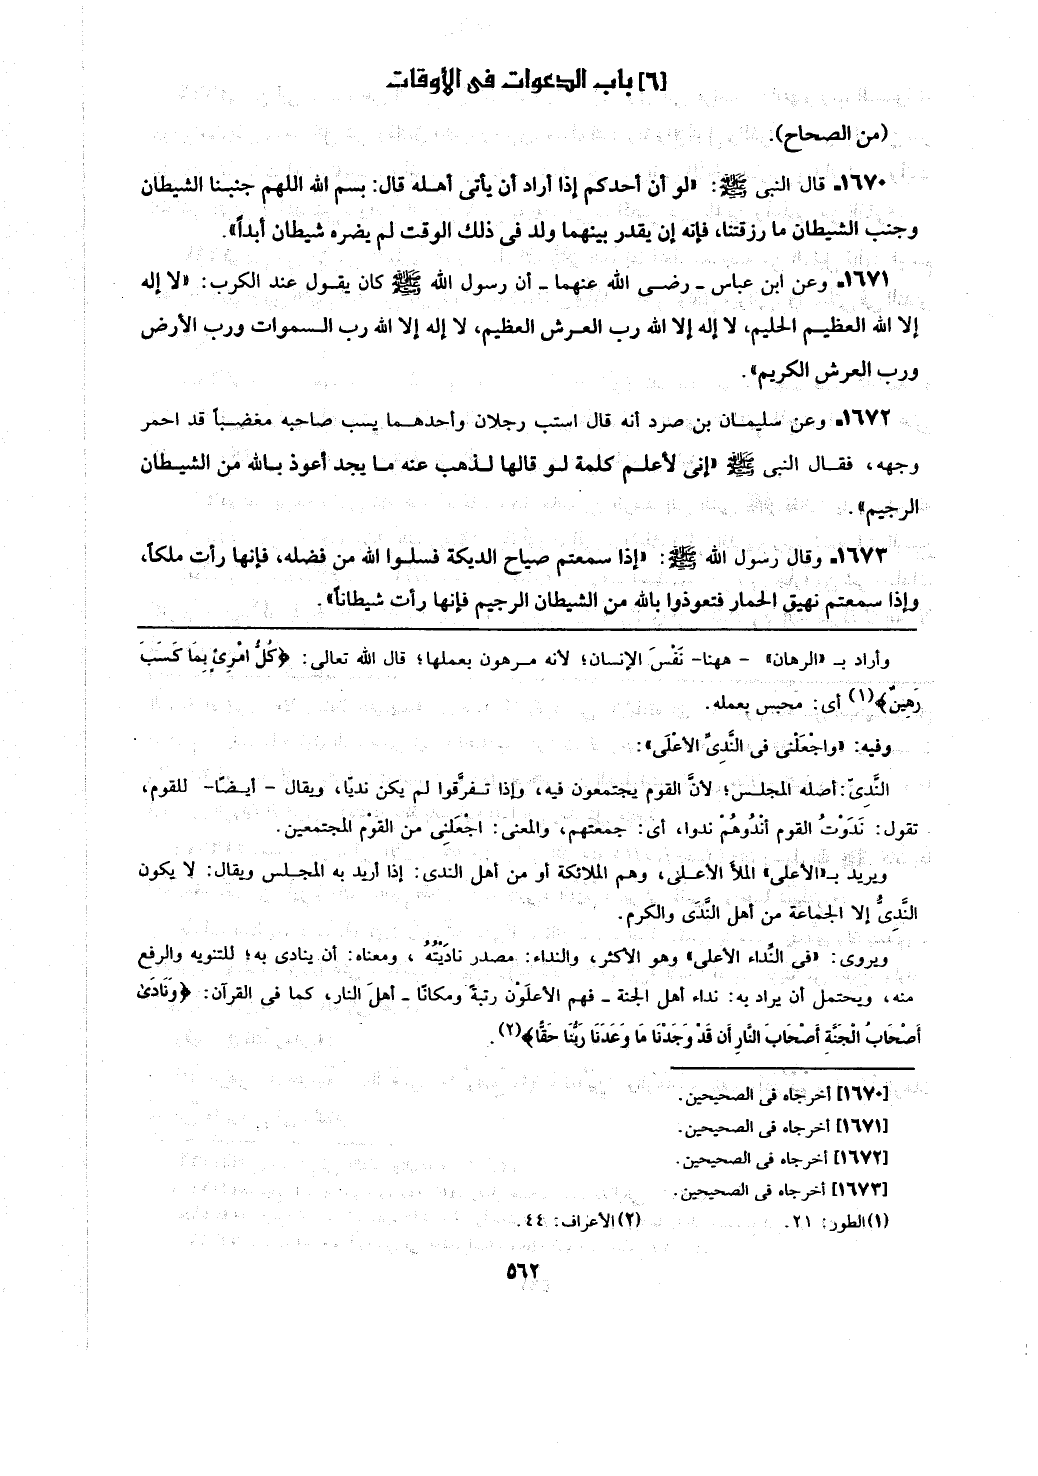 [٦] باب الدعوات فى الأوقات
(من الصحاح).
١٦٧٠ـ قال النبى ﷺ: «لو أن أحدكم إذا أراد أن يأتى أهله قال: بسم الله اللهم جنبنا الشيطان
وجنب الشيطان ما رزقتنا، فإنه إن يقدر بينهما ولد فى ذلك الوقت لم يضره شيطان أبداً».
١٦٧١ـ وعن ابن عباس ـ رضى الله عنهما ـ أن رسول الله ﷺ كان يقول عند الكرب: «لا إله
إلا الله العظيم الحليم، لا إله إلا الله رب العرش العظيم، لا إله إلا الله رب السموات ورب الأرض
ورب العرش الكريم».
١٦٧٢ـ وعن سليمان بن صرد أنه قال استب رجلان وأحدهما يسب صاحبه مغضباً قد احمر
وجهه، فقال النبى ﷺ «إنى لأعلم كلمة لو قالها لذهب عنه ما يجد أعوذ بالله من الشيطان
الرجيم».
١٦٧٣ـ وقال رسول الله ﷺ: «إذا سمعتم صياح الديكة فسلوا الله من فضله، فإنها رأت ملكاً،
وإذا سمعتم نهيق الحمار فتعوذوا بالله من الشيطان الرجيم فإنها رأت شيطاناً».
وأراد بـ «الرهان» - ههنا- نَفْسَ الإنسان؛ لأنه مرهون بعملها؛ قال الله تعالى: ﴿كُلُّ امْرِئٍ بِمَا كَسَبَ
رَهِينٌ﴾(١) أى: محبس بعمله.
وفيه: «واجْعَلْنى فى النَّدىِّ الأعْلَى»:
النَّدِىّ: أصله المجلس؛ لأنَّ القوم يجتمعون فيه، وإذا تفرَّقوا لم يكن نديّا، ويقال - أيضًا- للقوم،
تقول: نَدَوْتُ القوم أنْدُوهُمْ ندوا، أى: جمعتهم، والمعنى: اجْعَلنِى من القوْم المجتمعين.
ويريد بـ«الأعلى» الملأ الأعلى، وهم الملائكة أو من أهل الندى: إذا أريد به المجلس ويقال: لا يكون
النَّدِىُّ إلا الجماعة من أهل النَّدَى والكرم.
ويروى: «فى النِّداء الأعلى» وهو الأكثر، والنداء: مصدر نادَيْتُهُ، ومعناه: أن ينادى به؛ للتنويه والرفع
منه، ويحتمل أن يراد به: نداء أهل الجنة ـ فهم الأعلَوْن رتبةً ومكانًا ـ أهلَ النار، كما فى القرآن: ﴿وَنَادَىٰ
أَصْحَابُ الْجَنَّةِ أَصْحَابَ النَّارِ أَن قَدْ وَجَدْنَا مَا وَعَدَنَا رَبُّنَا حَقًّا﴾(٢).
[١٦٧٠] أخرجاه فى الصحيحين.
[١٦٧١] أخرجاه فى الصحيحين.
[١٦٧٢] أخرجاه فى الصحيحين.
[١٦٧٣] أخرجاه فى الصحيحين.
(١)الطور: ٢١. (٢)الأعراف: ٤٤.
٥٦٢